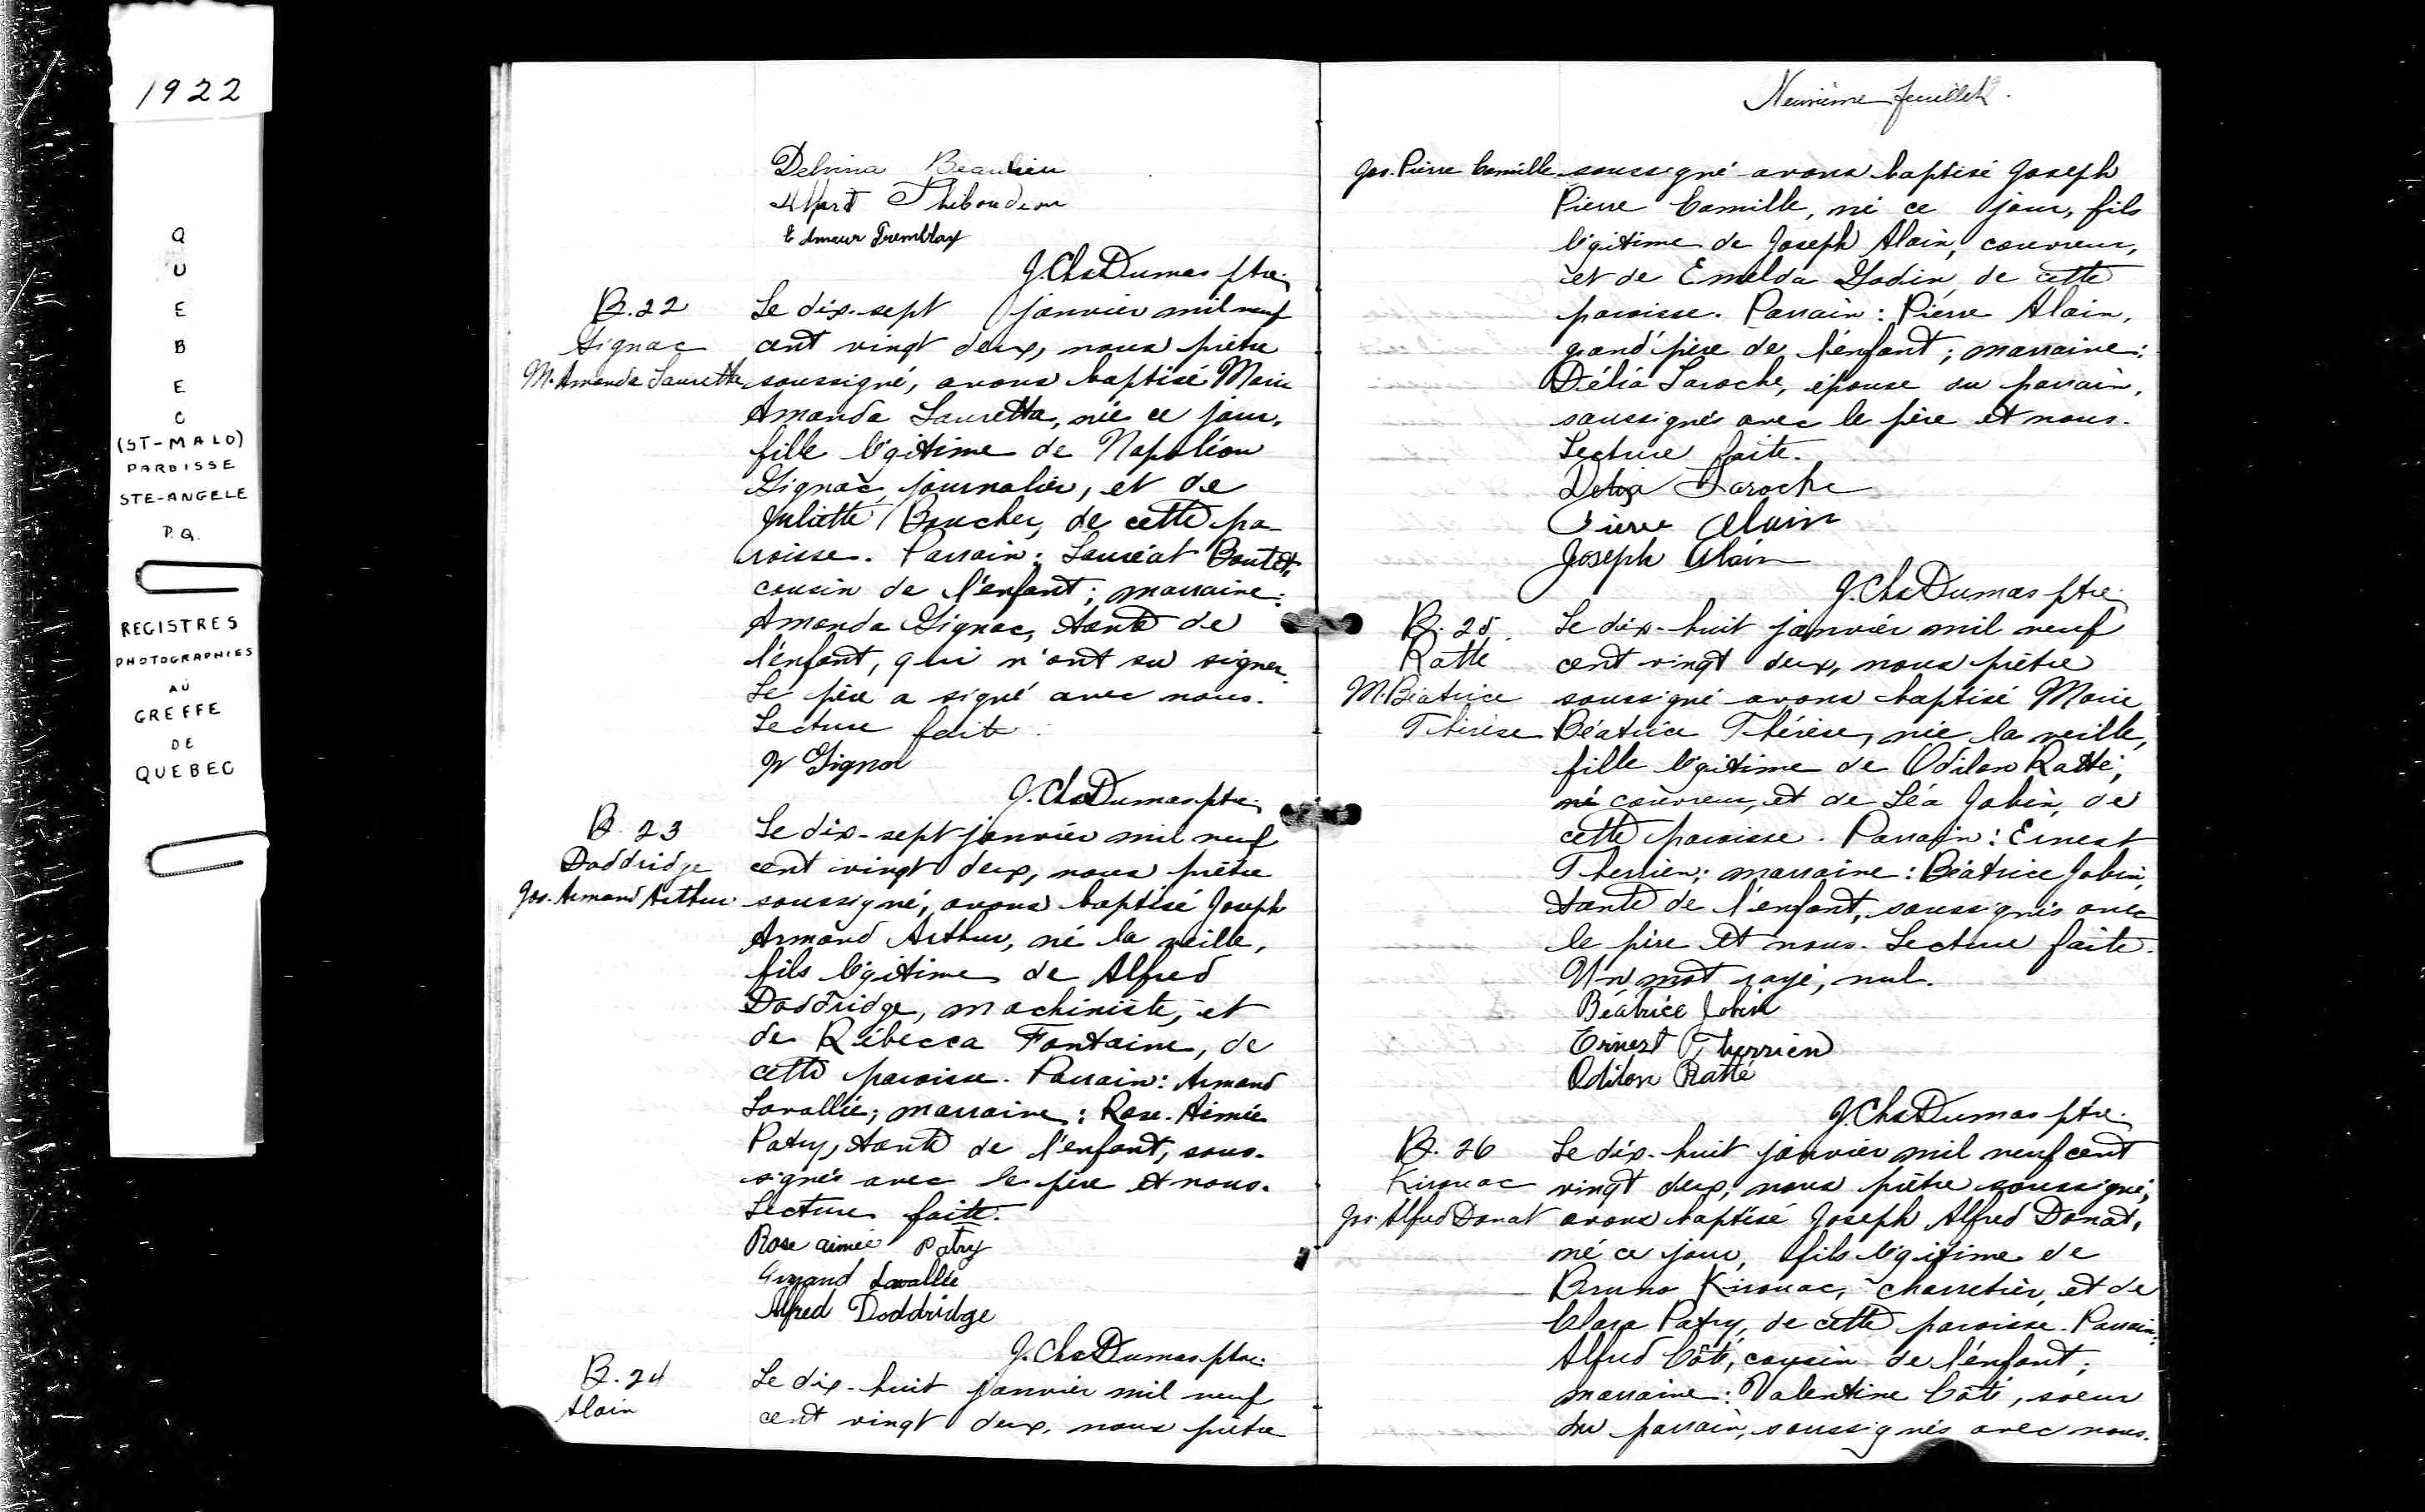 1922
Q
U
E
B
E
C
(ST-MALO)
PAROISSE
STE-ANGELE
P.Q.
REGISTRES
PHOTOGRAPHIES
AU
GREFFE
DE
QUEBEC
Delvina Beaulieu
Albert Thiboudeau
Edmour Tremblay
J. Chs Dumas ptre.
B. 22
Gignac
M. Amanda Lauretta
Le dix-sept janvier mil neuf
cent vingt deux, nous prêtre
soussigné, avons baptisé Marie
Amanda Lauretta, née ce jour,
fille légitime de Napoléon
Gignac, journalier, et de
Juliette Boucher, de cette pa-
roisse. Parrain: Lauréat Boutet,
cousin de l'enfant; marraine:
Amanda Gignac, tante de
l'enfant, qui n'ont su signer.
Le père a signé avec nous.
Lecture faite.
N Gignac
J. Chs Dumas ptre.
B. 23
Doddridge
Jos. Armand Arthur
Le dix-sept janvier mil neuf
cent vingt deux, nous prêtre
soussigné, avons baptisé Joseph
Armand Arthur, né la veille,
fils légitime de Alfred
Doddridge, machiniste, et
de Rébecca Fontaine, de
cette paroisse. Parrain: Armand
Lavallée; marraine: Rose-Aimée
Patry, tante de l'enfant, sous-
signés avec le père et nous.
Lecture faite.
Rose aimée Patry
Armand Lavallée
Alfred Doddridge
J. Chs Dumas ptre.
B. 24
Alain
Le dix-huit janvier mil neuf
cent vingt deux, nous prêtre
Neuvième feuillet.
Jos. Pierre Camille
soussigné avons baptisé Joseph
Pierre Camille, né ce jour, fils
légitime de Joseph Alain, couvreur,
et de Emelda Godin, de cette
paroisse. Parrain: Pierre Alain,
grand'père de l'enfant; marraine:
Délia Laroche, épouse du parrain,
soussignés avec le père et nous.
Lecture faite.
Delia Laroche
Pierre Alain
Joseph Alain
J. Chs Dumas ptre.
B. 25.
Ratté
M. Béatrice
Thérèse
Le dix-huit janvier mil neuf
cent vingt deux, nous prêtre
soussigné avons baptisé Marie
Béatrice Thérèse, née la veille,
fille légitime de Odilon Ratté,
né couvreur, et de Léa Jobin, de
cette paroisse. Parrain: Ernest
Therrien; marraine: Béatrice Jobin,
tante de l'enfant, soussignés avec
le père et nous. Lecture faite.
Un mot rayé, nul.
Béatrice Jobin
Ernest Therrien
Odilon Ratté
J. Chs Dumas ptre.
B. 26
Kirouac
Jos. Alfred Donat
Le dix-huit janvier mil neuf cent
vingt deux, nous prêtre soussigné,
avons baptisé Joseph Alfred Donat,
né ce jour, fils légitime de
Bruno Kirouac, charretier, et de
Clara Patry, de cette paroisse. Parrain:
Alfred Côté, cousin de l'enfant;
marraine: Valentine Côté, soeur
du parrain, soussignés avec nous.